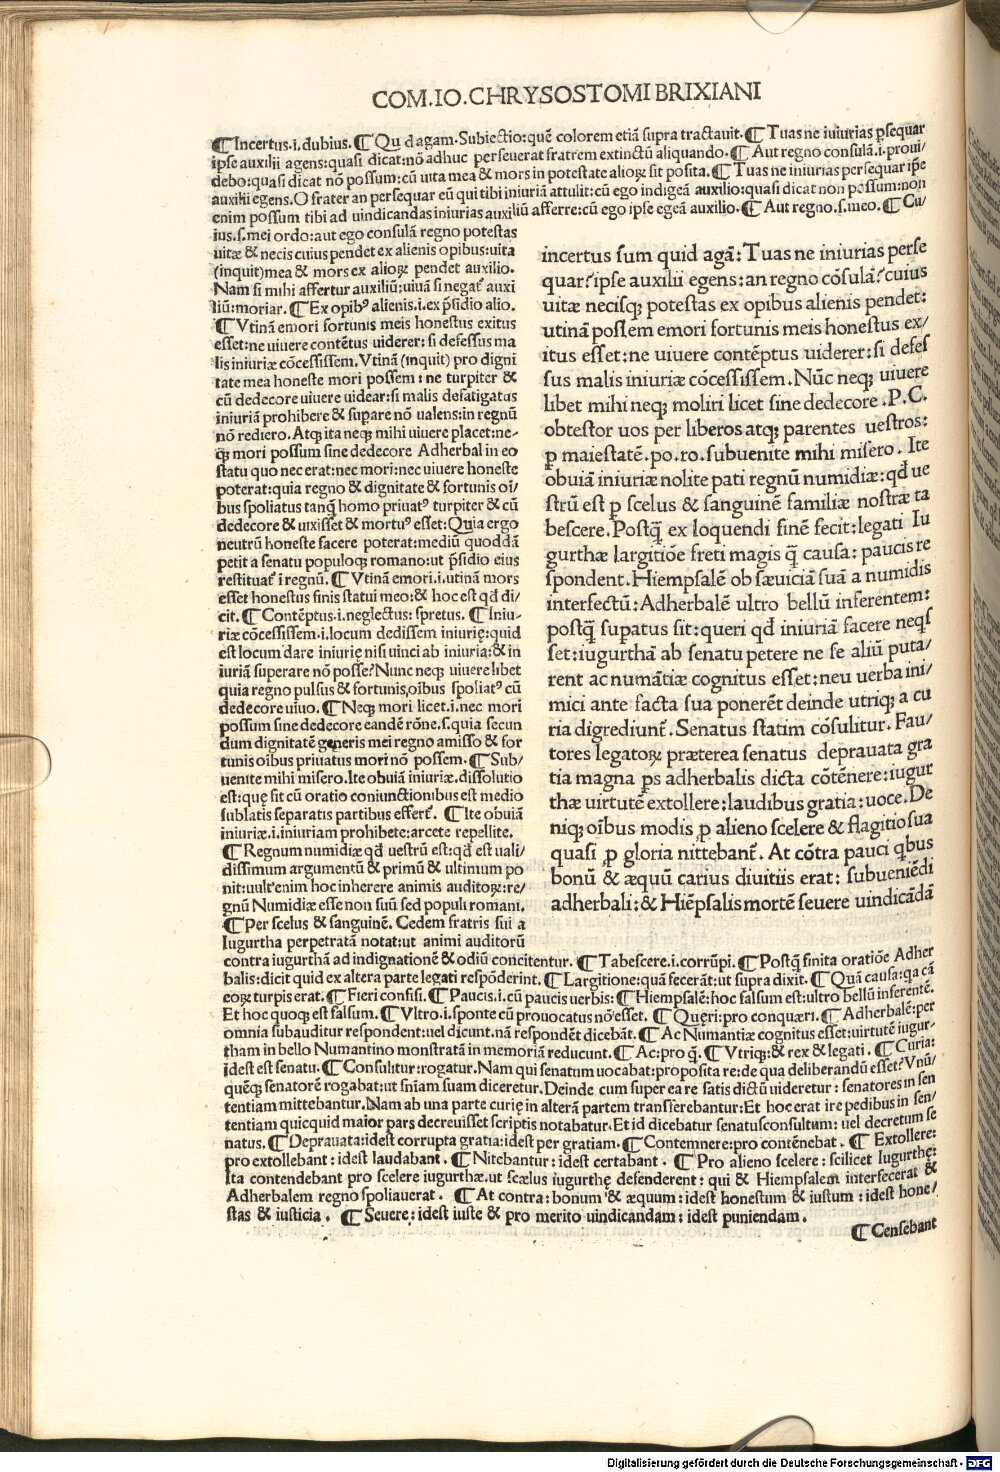 COM.IO.CHRYSOSTOMI BRIXIANI
¶Incertus.i.dubius.¶Qu d agam.Subiectio:quē colorem etiā supra tractauit.¶Tuas ne iniurias ꝑsequar
ipse auxilii agens:quasi dicat:nō adhuc perseuerat fratrem extinctū aliquando.¶Aut regno consulā.i.proui/
debo:quasi dicat nō possum:cū uita mea & mors in potestate alioꝝ sit posita.¶Tuas ne iniurias persequar ip̄e
auxilii egens.O frater an persequar eū qui tibi iniuriā attulit:cū ego indigeā auxilio:quasi dicat non possum:non
enim possum tibi ad uindicandas iniurias auxiliū afferre:cū ego ipse egeā auxilio.¶Aut regno.s.meo.¶Cu/
ius.s.mei ordo:aut ego consulā regno potestas
uitæ & necis cuius pendet ex alienis opibus:uita
(inquit)mea & mors ex alioꝝ pendet auxilio.
Nam si mihi affertur auxiliū:uiuā si negat᷑ auxi
liū:moriar.¶Ex opibꝰ alienis.i.ex p̄sidio alio.
¶Vtinā emori fortunis meis honestus exitus
esset:ne uiuere contētus uiderer:si defessus ma
lis iniuriæ cōcessissem.Vtinā (inquit) pro digni
tate mea honeste mori possem:ne turpiter &
cū dedecore uiuere uidear:si malis defatigatus
iniuriā prohibere & supare nō ualens:in regnū
nō rediero.Atqꝫ ita neqꝫ mihi uiuere placet:ne-
qꝫ mori possum sine dedecore Adherbal in eo
statu quo nec erat:nec mori:nec uiuere honeste
poterat:quia regno & dignitate & fortunis oī/
bus spoliatus tanq̄ homo priuatꝰ turpiter & cū
dedecore & uixisset & mortuꝰ esset:Quia ergo
neutrū honeste facere poterat:mediū quoddā
petit a senatu populoqꝫ romano:ut p̄sidio eius
restituat᷑ i regnū.¶Vtinā emori.i.utinā mors
esset honestus finis statui meo:& hoc est qd̄ di/
cit.¶Contēptus.i.neglectus:spretus.¶Iniu-
riæ cōcessissem.i.locum dedissem iniurię:quid
est locum dare iniurię nisi uinci ab iniuria:& in
iuriā superare nō posse?Nunc neqꝫ uiuere libet
quia regno pulsus & fortunis,oībus spoliatꝰ cū
dedecore uiuo.¶Neqꝫ mori licet.i.nec mori
possum sine dedecore eandē rōne.s.quia secun
dum dignitatē generis mei regno amisso & for
tunis oībus priuatus mori nō possem.¶Sub/
uenite mihi misero.Ite obuiā iniuriæ.dissolutio
est:quę fit cū oratio coniunctionibus est medio
sublatis separatis partibus effert᷑.¶Ite obuiā
iniuriæ.i.iniuriam prohibete:arcete repellite.
¶Regnum numidiæ qd̄ uestrū est:qd̄ est uali/
dissimum argumentū & primū & ultimum po
nit:uult enim hoc inherere animis auditoꝝ:re/
gnū Numidiæ esse non suū sed populi romani.
¶Per scelus & sanguinē. Cedem fratris sui a
Iugurtha perpetratā notat:ut animi auditorū
contra iugurthā ad indignationē & odiū concitentur.¶Tabescere.i.corrūpi.¶Postq̄ finita oratiōe Adher
balis:dicit quid ex altera parte legati respōderint.¶Largitione:quā fecerāt:ut supra dixit.¶Quā causa:q̄a cā
eoꝝ turpis erat.¶Fieri confisi.¶Paucis.i.cū paucis uerbis:¶Hiempsalē:hoc falsum est:ultro bellū inferentē.
Et hoc quoqꝫ est falsum.¶Vltro.i.sponte cū prouocatus nō esset.¶Queri:pro conquæri.¶Adherbalē:per
omnia subauditur respondent:uel dicunt.nā respondēt dicebāt.¶Ac Numantiæ cognitus esset:uirtutē iugur-
tham in bello Numantino monstratā in memoriā reducunt.¶Ac:pro q̄.¶Vtriqꝫ:& rex & legati.¶Curia:
idest est senatu.¶Consulitur:rogatur.Nam qui senatum uocabat:proposita re:de qua deliberandū esset?Vnū/
quēqꝫ senatorē rogabat:ut sn̄iam suam diceretur.Deinde cum super ea re satis dictū uideretur:senatores in sen
tentiam mittebantur.Nam ab una parte curię in alterā partem transferebantur:Et hoc erat ire pedibus in sen/
tentiam quicquid maior pars decreuisset scriptis notabatur.Et id dicebatur senatusconsultum: uel decretum se
natus.¶Deprauata:idest corrupta gratia:idest per gratiam.¶Contemnere:pro contēnebat.¶Extollere:
pro extollebant:idest laudabant.¶Nitebantur:idest certabant.¶Pro alieno scelere:scilicet Iugurthę:
Ita contendebant pro scelere iugurthæ.ut scælus iugurthę defenderent: qui & Hiempsalem interfecerat &
Adherbalem regno spoliauerat.¶At contra:bonum & æquum:idest honestum & iustum:idest hone/
stas & iusticia.¶Seuere:idest iuste & pro merito uindicandam:idest puniendam.
incertus sum quid agā:Tuas ne iniurias perse
quar?ipse auxilii egens:an regno cōsulā?cuius
uitæ necisqꝫ potestas ex opibus alienis pendet:
utinā possem emori fortunis meis honestus ex/
itus esset:ne uiuere contēptus uiderer:si defes
sus malis iniuriæ cōcessissem.Nūc neqꝫ uiuere
libet mihi neqꝫ moliri licet sine dedecore.P.C.
obtestor uos per liberos atqꝫ parentes uestros:
ꝑ maiestatē.po.ro.subuenite mihi misero.Ite
obuiā iniuriæ nolite pati regnū numidiæ:qd̄ ue
strū est ꝑ scelus & sanguinē familiæ nostræ ta
bescere.Postq̄ ex loquendi finē fecit:legati Iu
gurthæ largitiōe freti magis q̄ causa:paucis re
spondent.Hiempsalē ob sæuiciā suā a numidis
interfectū:Adherbalē ultro bellū inferentem:
postq̄ supatus sit:queri qd̄ iniuriā facere neqs
set:iugurthā ab senatu petere ne se aliū puta/
rent ac numātiæ cognitus esset:neu uerba ini/
mici ante facta sua ponerēt deinde utriqꝫ a cu
ria digrediunt᷑.Senatus statim cōsulitur.Fau/
tores legatoꝝ præterea senatus deprauata gra
tia magna ps adherbalis dicta cōtēnere:iugur
thæ uirtutē extollere:laudibus gratia:uoce.De
niqꝫ oībus modis ꝓ alieno scelere & flagitio sua
quasi ꝓ gloria nittebant᷑.At cōtra pauci qbus
bonū & æquū carius diuitiis erat: subueniēdi
adherbali:& Hiēpsalis mortē seuere uindicādā
¶Censebant
Digitalisierung gefördert durch die Deutsche Forschungsgemeinschaft - DFG